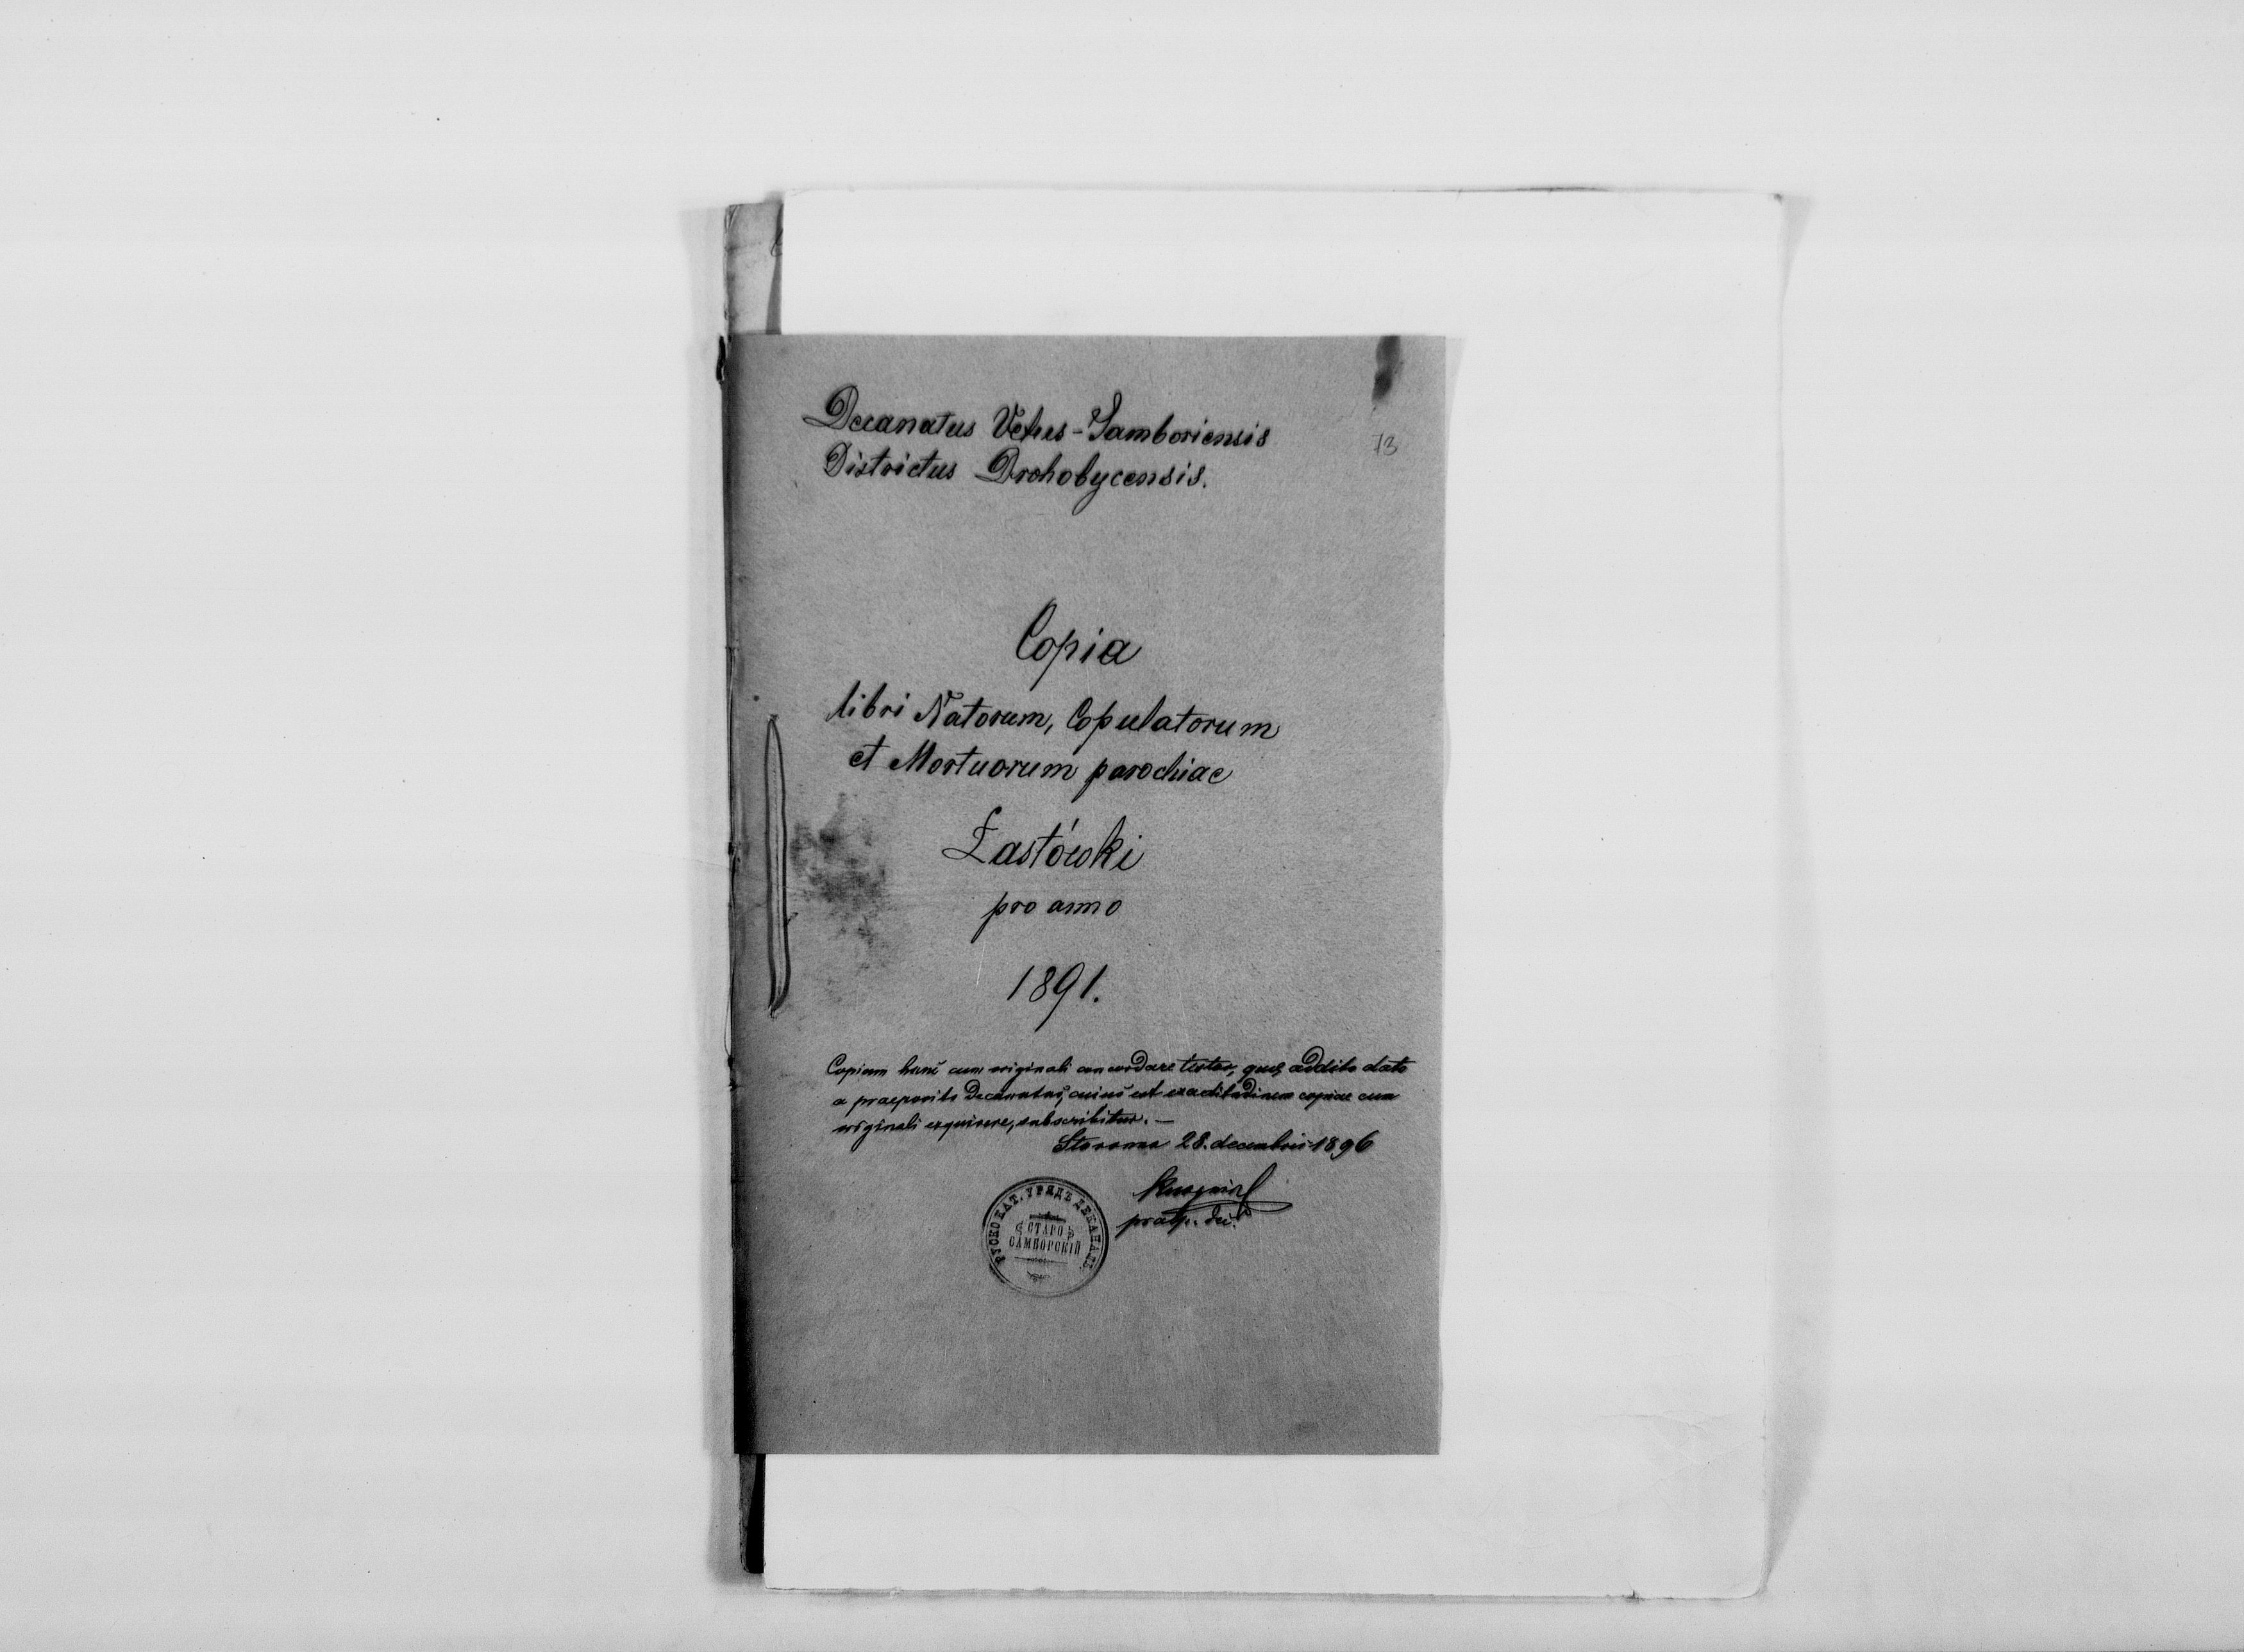 Decanatus Vetus-Samboriensis
73
Districtus Drohobycensis.
Copia
libri Natorum, Copulatorum
et Mortuorum parochiae
Łastówki
pro anno
1891.
Copiam hanc cum originali concordare testor, quod addito dato
a praeposito Decanatus, cuius est exactitudinem copiae cum
originali exquirere, subscribitur. —
Storonna 28. decembris 1896
praep. dec.
РУСКО КАТ. УРЯДЪ ДЕКАНАЛ.
СТАРО
САМБОРСКІЙ